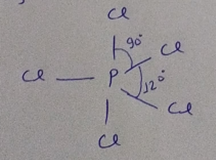 Cl
90°
Cl
Cl
P
120°
Cl
Cl